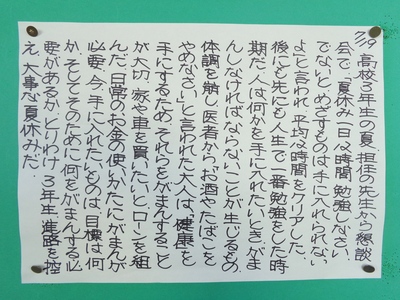 7/9 高校3年生の夏、担任の先生から懇談
会で、「夏休み一日12時間、勉強しなさい。
でないと、めざすものは手に入れられない
よ」と言われ、平均12時間をクリアした。
後にも先にも人生で一番勉強をした時
期だ。人は何かを手に入れたいとき、がま
んしなければならないことが生じるもの。
体調を崩し、医者から「お酒やたばこを
やめなさい。」と言われた大人は、「健康を
手にするため、それらをがまんする」こと
が大切。家や車を買いたいと、ローンを組
んだ。日常のお金の使いかたにがまんが
必要。今、手に入れたいものは、目標は何
か、そしてそのために何をがまんする必
要があるか。とりわけ3年生、進路を控
え、大事な夏休みだ。